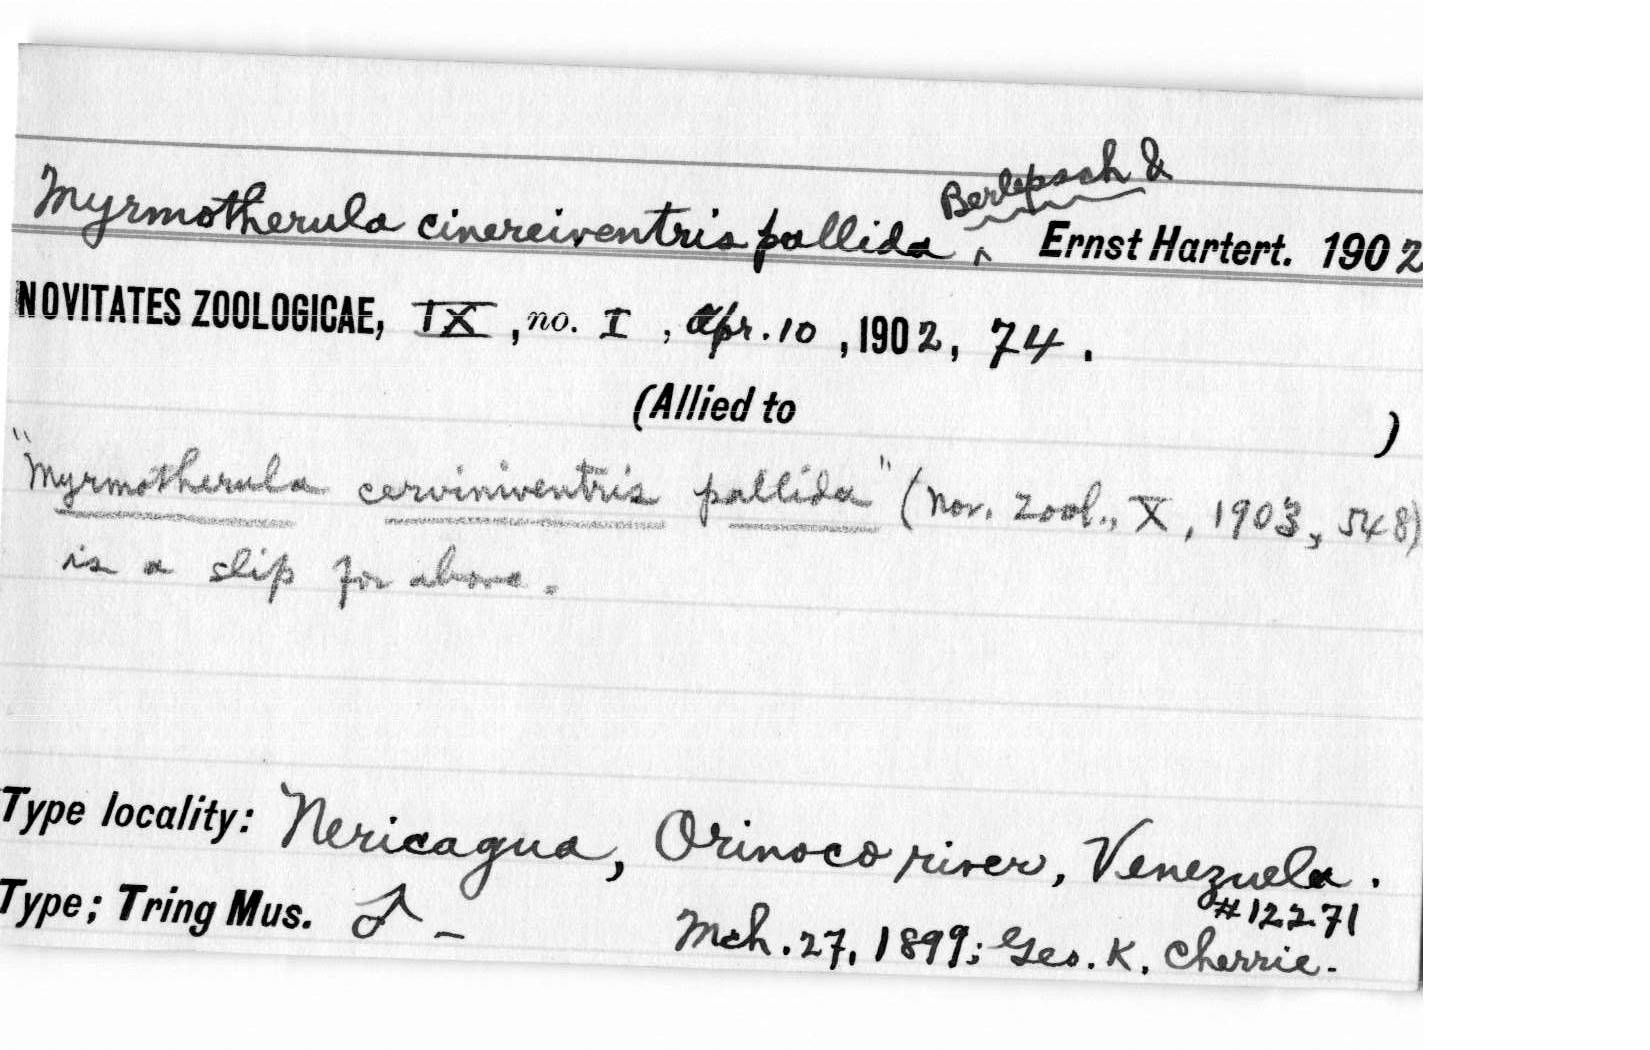 Myrmotherula cinereiventris pallida ‸ Berlepsch & Ernst Hartert. 1902
NOVITATES ZOOLOGICAE, IX, no. I, Apr. 10, 1902, 74.
(Allied to )
"Myrmotherula cerviniventris pallida" (Nov. Zool., X, 1903, 548)
is a slip for above.
Type locality: Nericagua, Orinoco river, Venezuela.
Type; Tring Mus. ♂ – #12271
Mch. 27, 1899; Geo. K. Cherrie.